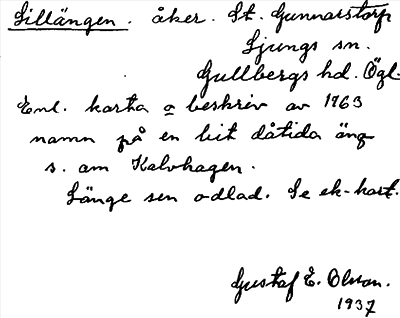 Lillängen. åker. St. Gunnarstorp
Ljungs sn.
Gullbergs hd. Ögl.
Enl. karta o beskriv av 1763
namn på en bit dåtida äng
s. om Kalvhagen.
Länge sen odlad. Se ek-kart.
Gustaf E. Olson.
1937